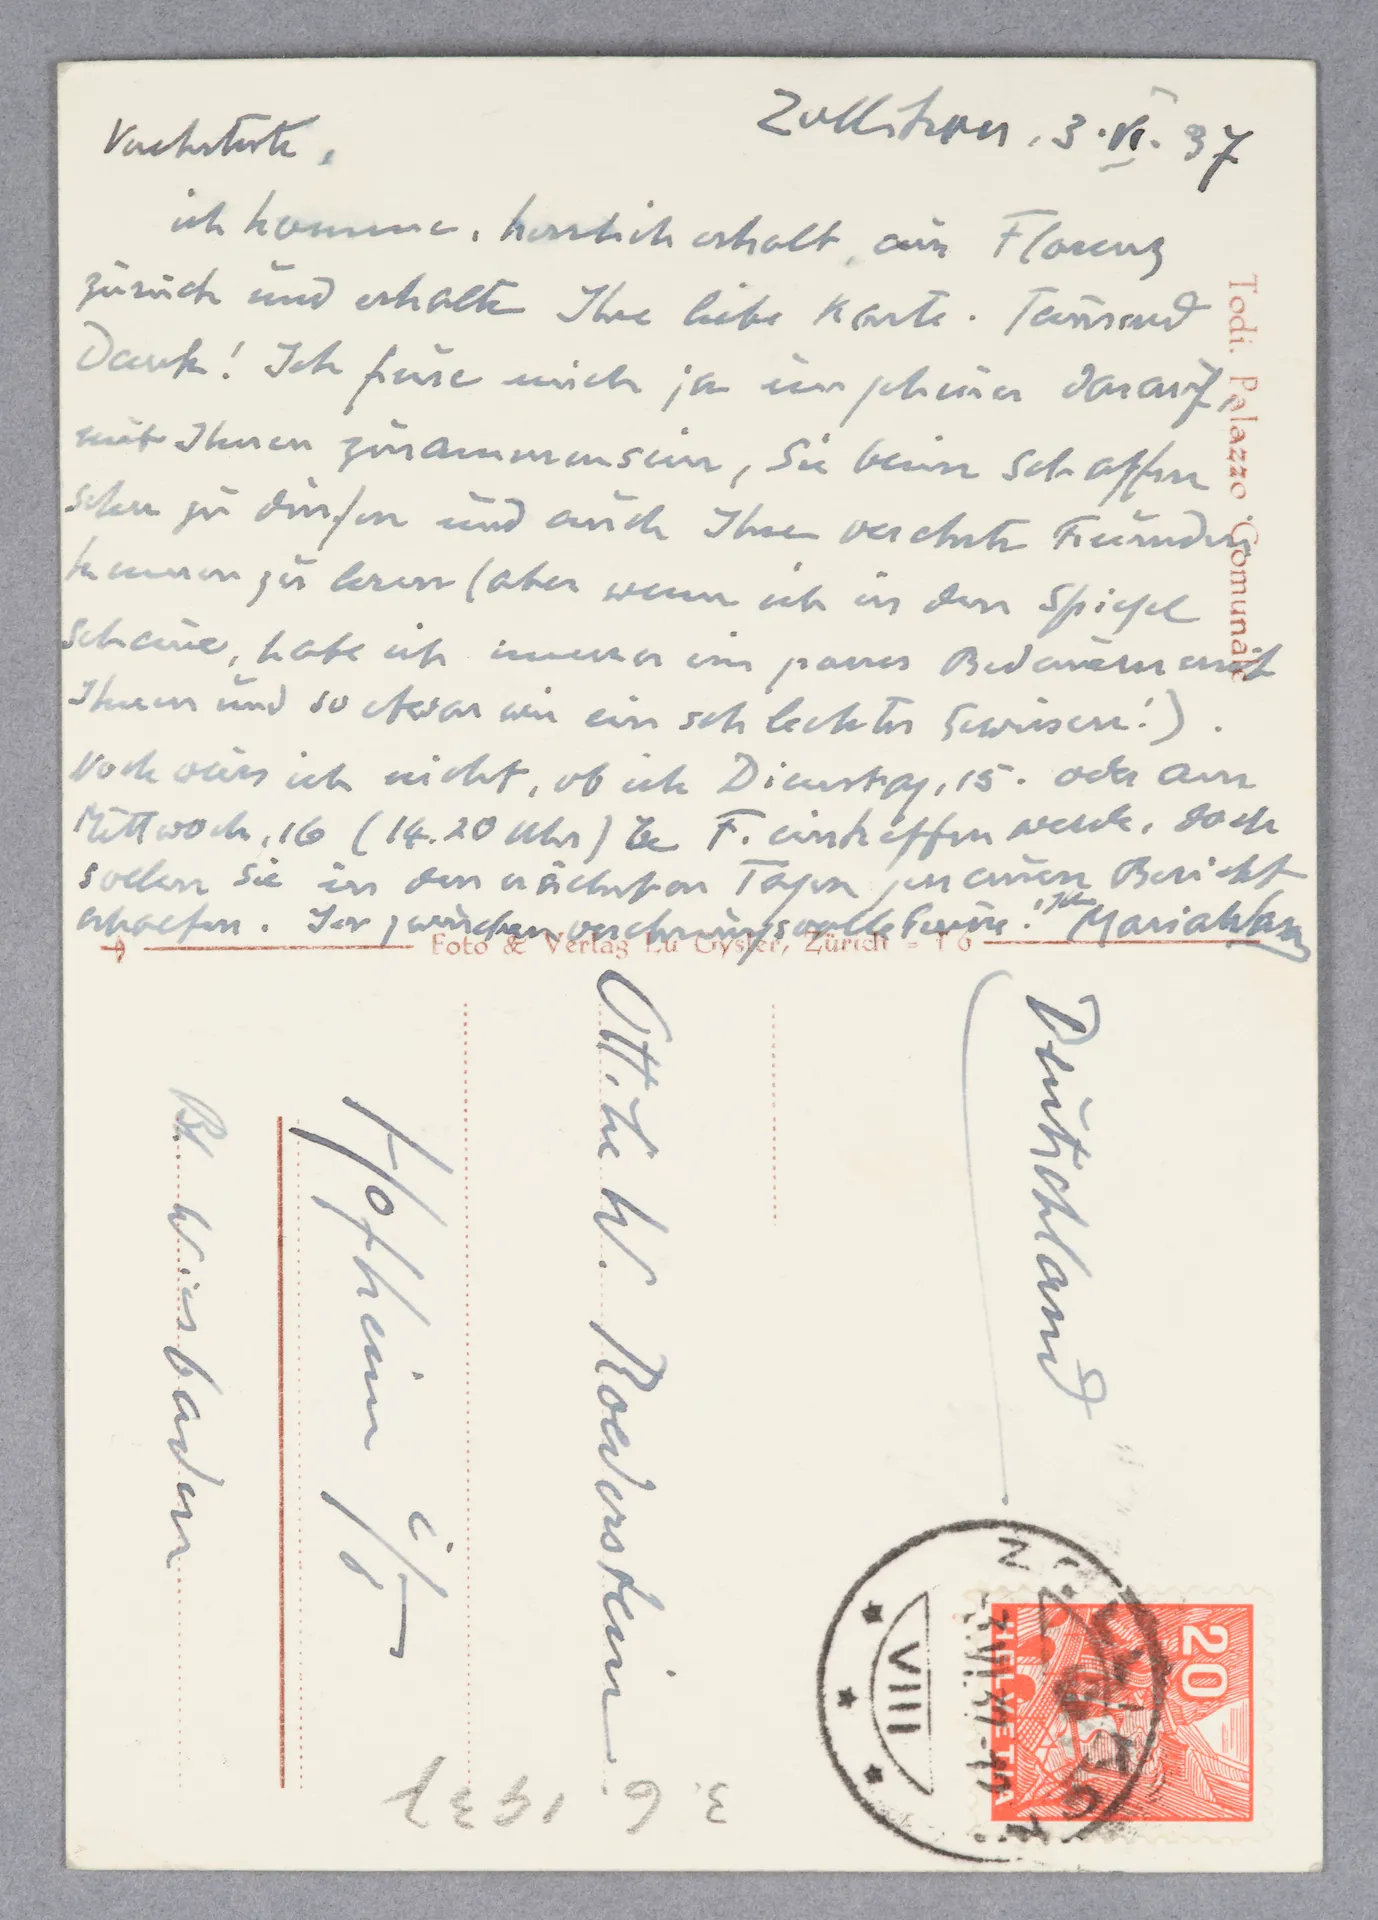 Zollikon, 3.VI.37
Verehrteste,
ich komme, herrlich erholt, aus Florenz
zurück und erhalte Ihre liebe Karte. Tausend
Dank! Ich freue mich ja ungeheuer darauf,
mit Ihnen zusammensein, Sie beim Schaffen
sehen zu dürfen und auch Ihre verehrte Freundin
kennen zu lernen (aber wenn ich in den Spiegel
schaue, habe ich immer ein Bedauern mit
Ihnen und so etwas wie ein schlechtes Gewissen!).
Noch weiss ich nicht, ob ich Dienstag, 15. oder am
Mittwoch, 16 (14.20 Uhr) in F. eintreffen werde, doch
sollen Sie in den nächsten Tagen genauen Bericht
erhalten. In verehrungsvoller Treue! Ihr
Todi. Palazzo Comunale
Foto & Verlag Lu Gysler, Zürich = 16
Deutschland
Ottilie W. Roederstein
Hofheim i/T
Bz. Wiesbaden
3. 6. 1937
20
HELVETIA
VIII